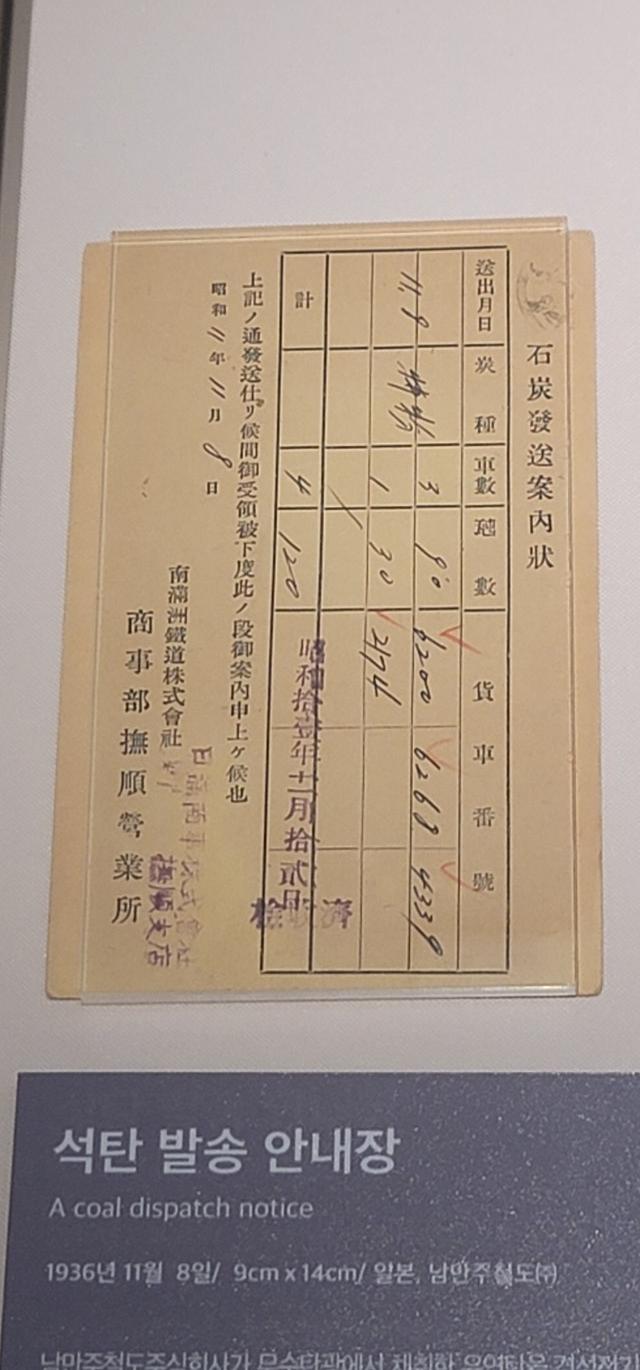 石炭發送案內狀
送出月日 炭種 車數 瓲數 貨車番號
3 90 6200 6268 4339
11, 8 1 30 2174
計 4 120
上記ノ通發送仕リ候間御受領被下度此ノ段御案內申上ケ候也
昭和11年11月8日
南滿洲鐵道株式會社
商事部撫順營業所
日滿商事株式會社
撫順支店
昭和拾壹年十一月拾貳日
檢收濟
석탄 발송 안내장
A coal dispatch notice
1936년 11월 8일/ 9cm x 14cm/ 일본, 남만주철도㈜
남만주철도주식회사가 무순탄광에서 채취한 유연탄을